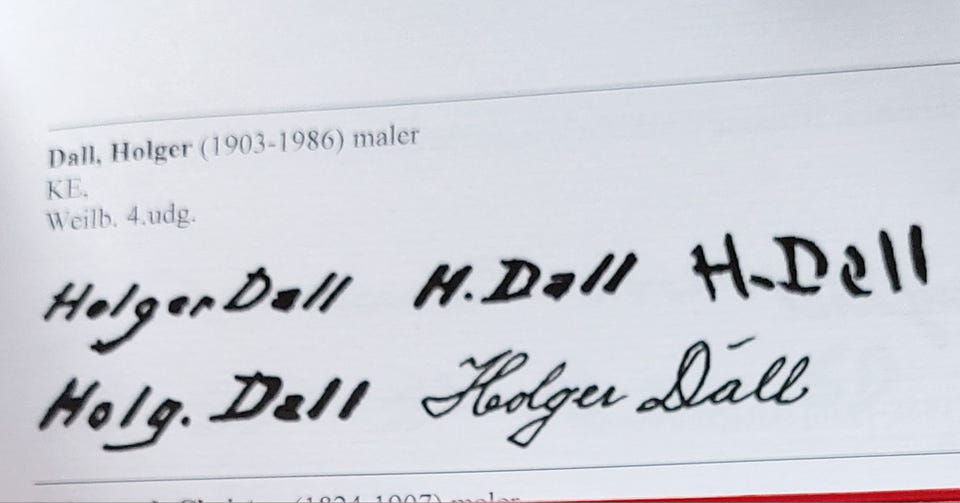 Dall, Holger (1903-1986) maler
KE.
Weilb. 4.udg.
Holger Dall H. Dall H. Dall
Holg. Dall Holger Dall
(1824-1907) maler